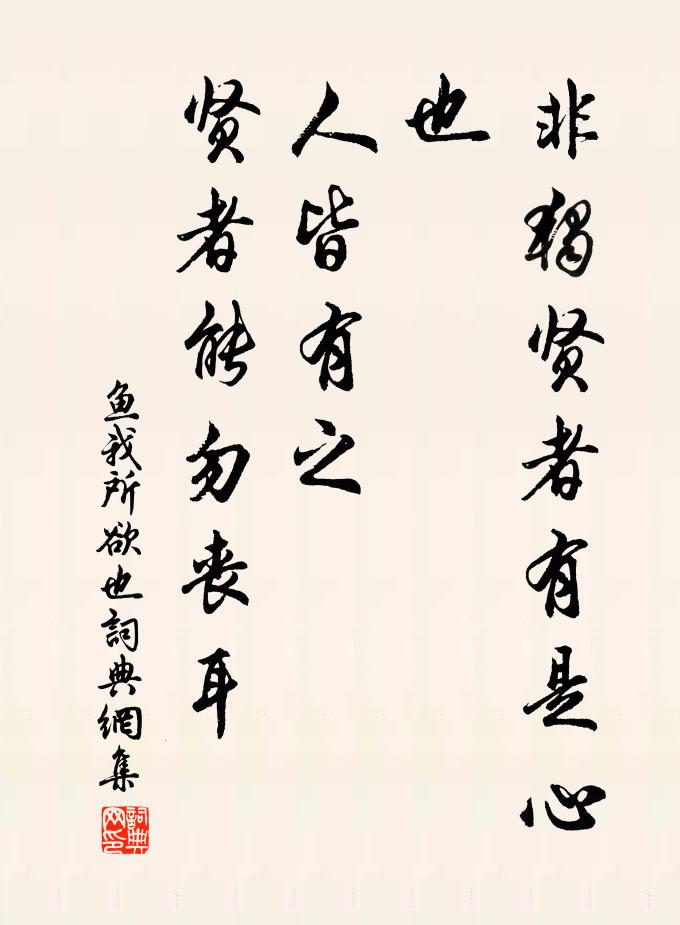 非独贤者有是心
也
人皆有之
贤者能勿丧耳
鱼我所欲也詞典網集
詞典
网印